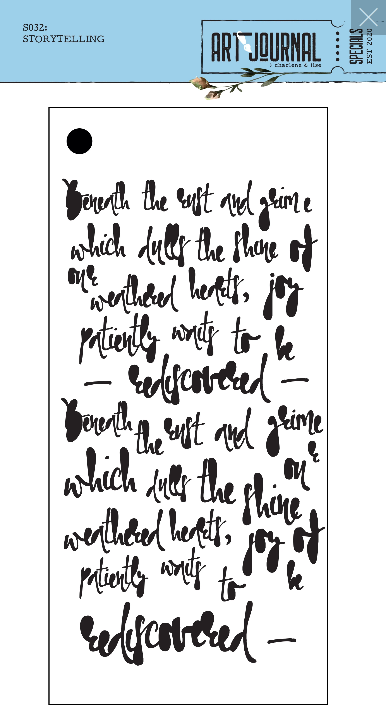 S032:
STORYTELLING
ART JOURNAL
SPECIALS
EST 2020
Beneath the rust and grime
which dulls the shine of
our
weathered hearts, joy
patiently waits to be
— rediscovered —
Beneath the rust and grime
which dulls the shine our
weathered hearts, joy of
patiently waits to be
rediscovered —